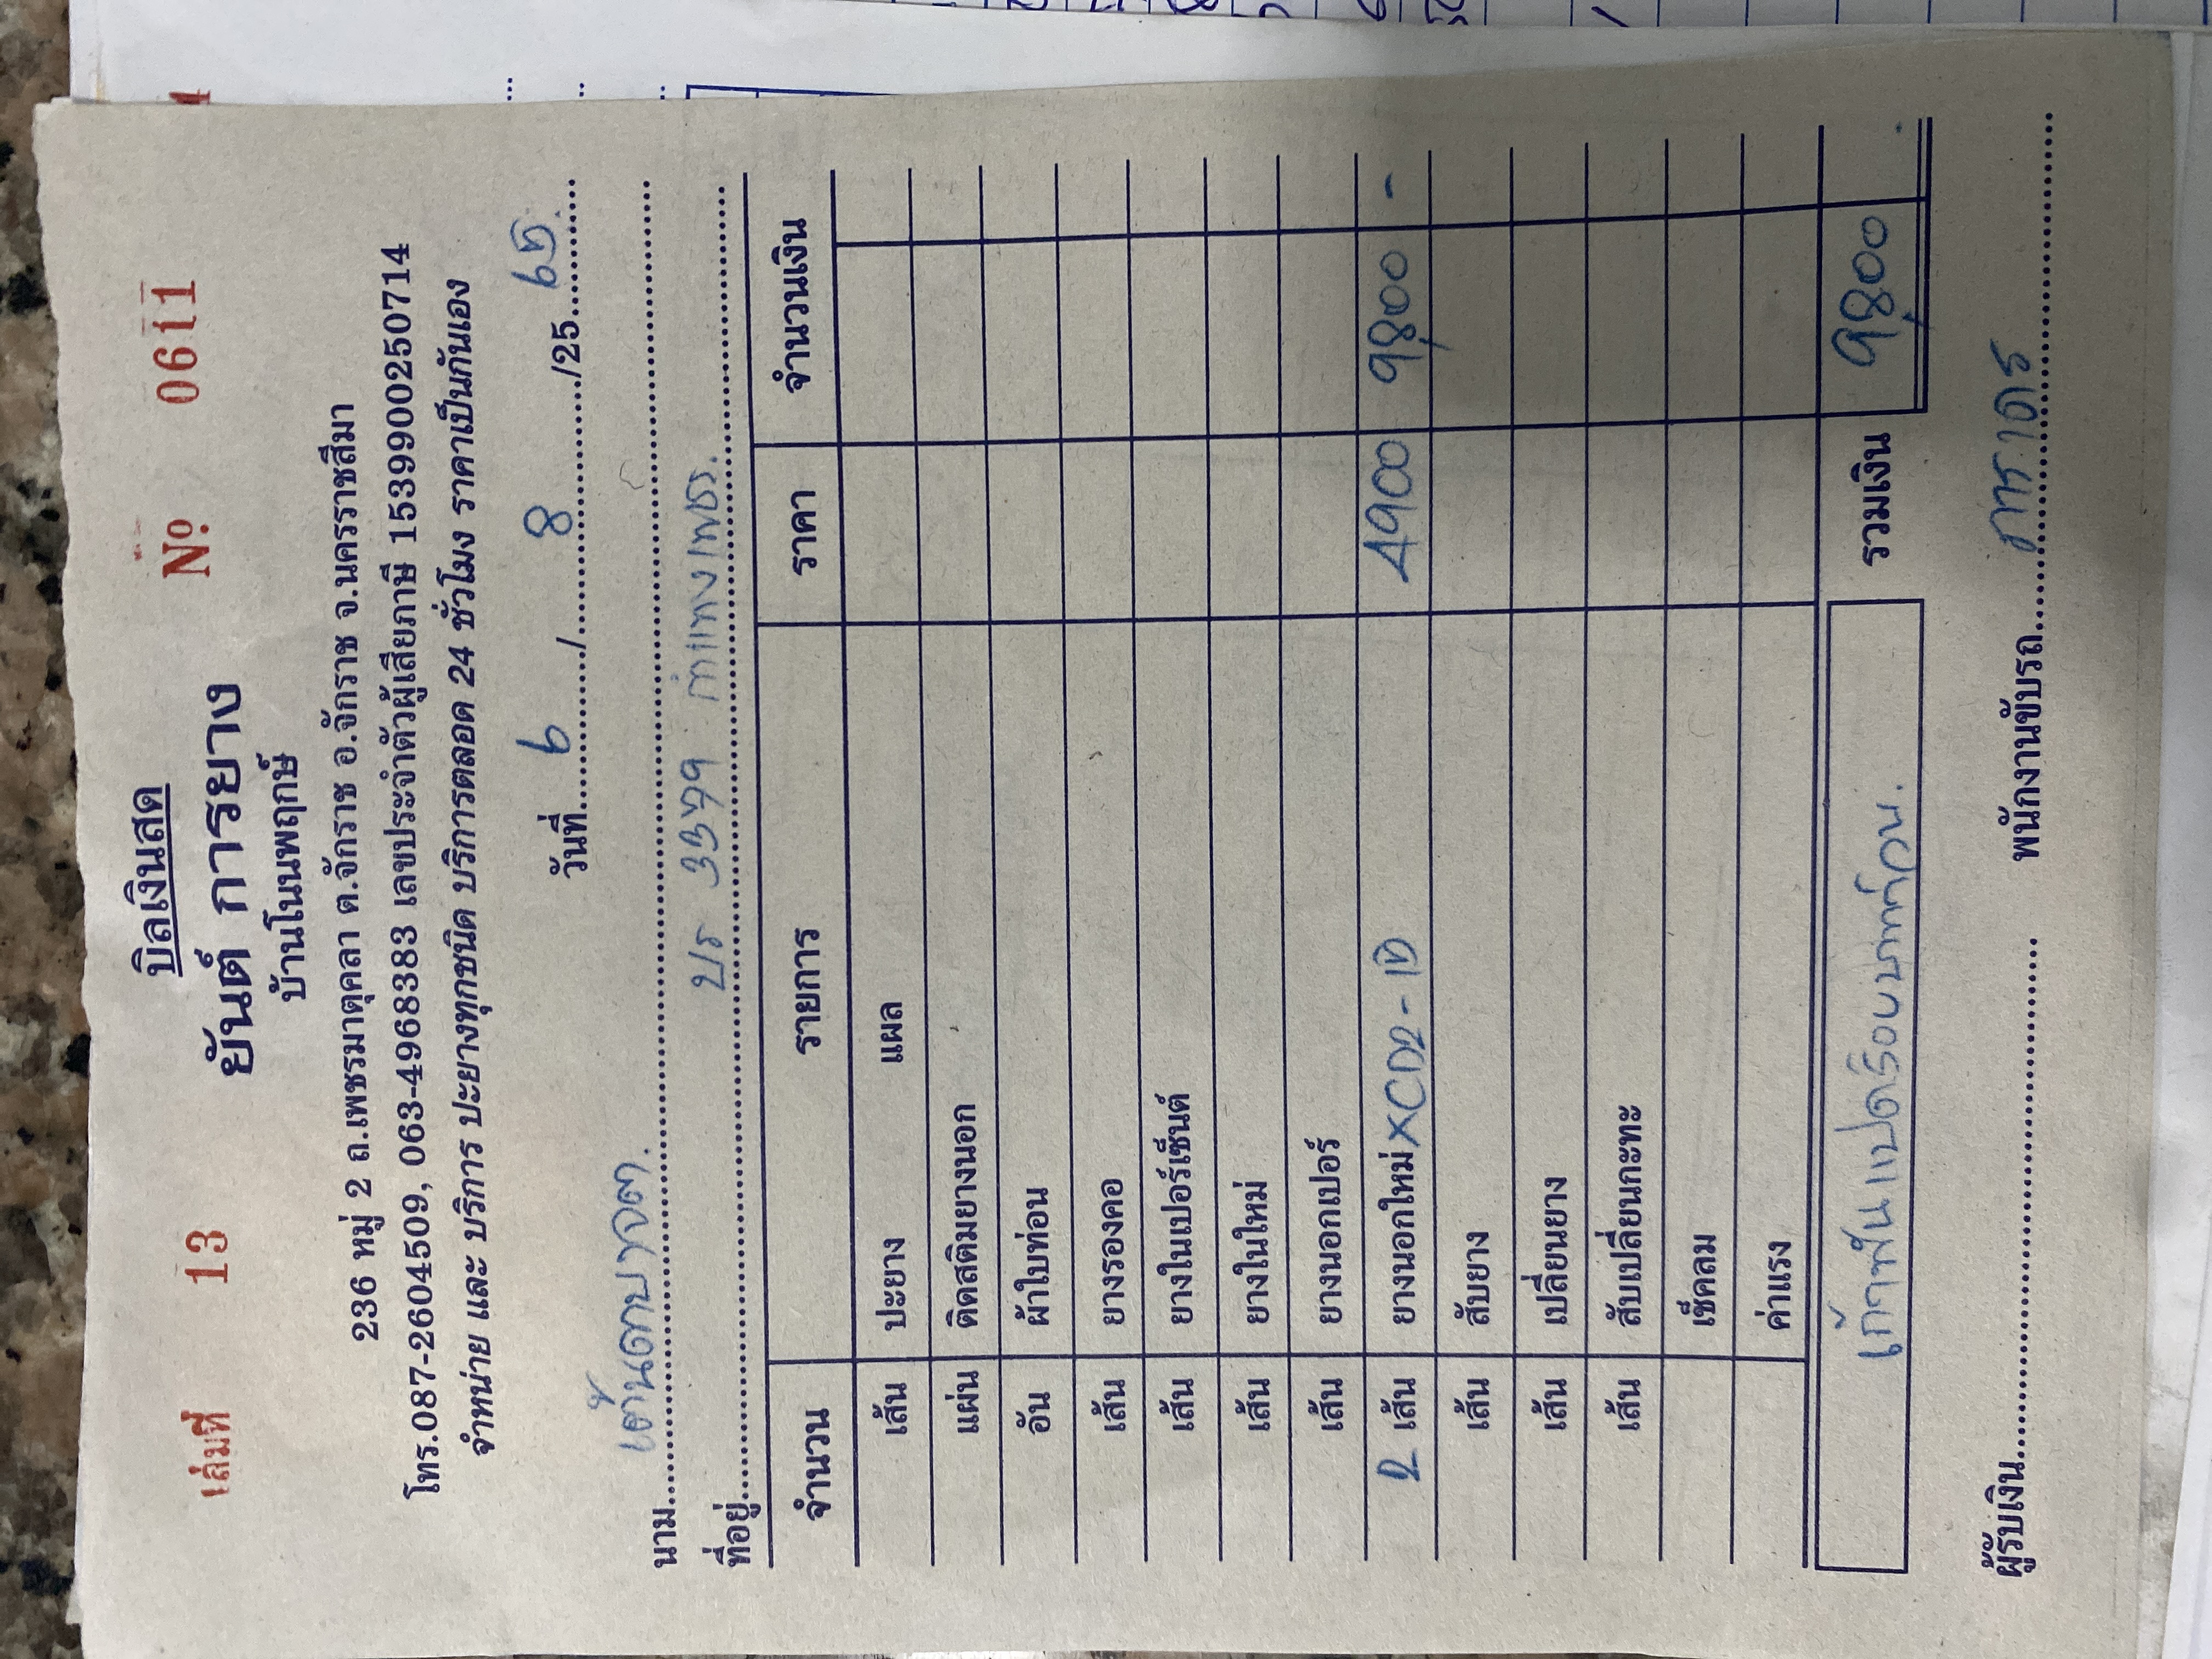 เล่มที่ 13 บิลเงินสด № 0611
ยันต์ การยาง
บ้านโนนพฤกษ์
236 หมู่ 2 ถ.เพชรมาตุคลา ต.จักราช อ.จักราช จ.นครราชสีมา
โทร.087-2604509, 063-4968383 เลขประจำตัวผู้เสียภาษี 1539900250714
จำหน่าย และ บริการ ปะยางทุกชนิด บริการตลอด 24 ชั่วโมง ราคาเป็นกันเอง
วันที่ 6 / 8 /25 65
นาม
ที่อยู่ 3379 กำแพงเพชร.
จำนวน รายการ ราคา จำนวนเงิน
เส้น ปะยาง แผล
แผ่น ติดสติมยางนอก
อัน ผ้าใบท่อน
เส้น ยางรองคอ
เส้น ยางในเปอร์เซ็นต์
เส้น ยางในใหม่
เส้น ยางนอกเปอร์
2 เส้น ยางนอกใหม่ 4900 9,800 -
เส้น สับยาง
เส้น เปลี่ยนยาง
เส้น สับเปลี่ยนกะทะ
เช็คลม
ค่าแรง
เก้าพันแปดร้อยบาทถ้วน. รวมเงิน 9,800
ผู้รับเงิน พนักงานขับรถ